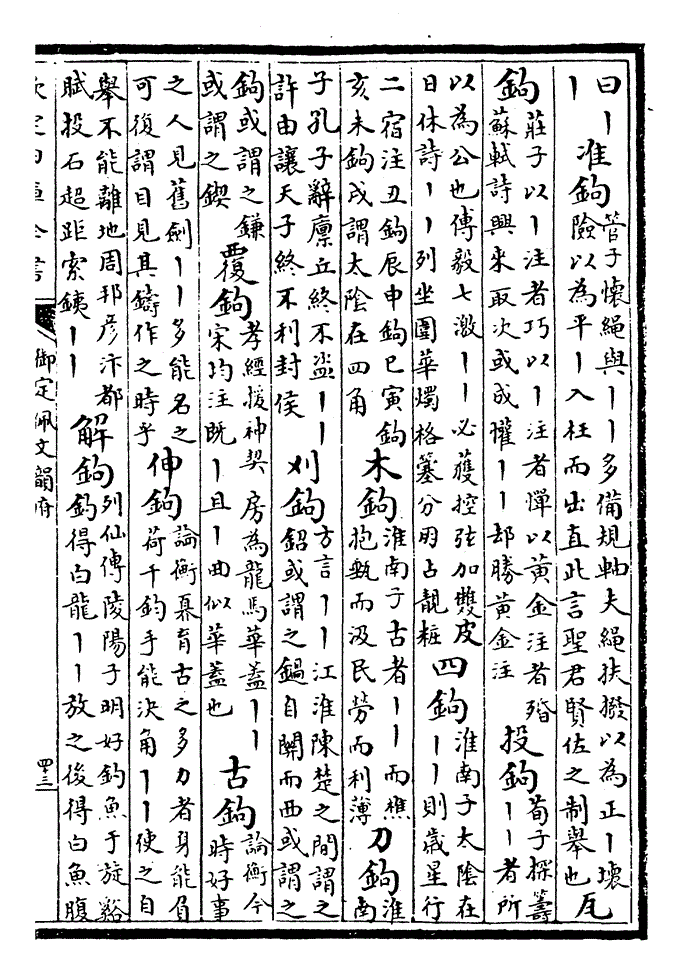 曰丨
丨
准鉤
管子懷繩與丨丨多備規軸夫繩扶撥以為正丨壞
險以為平丨入枉而出直此言聖君賢佐之制舉也
瓦
鉤
莊子以丨注者巧以丨注者憚以黃金注者殙
蘇軾詩興來取次或成懽丨丨却勝黃金注
投鉤
荀子探籌
丨丨者所
以為公也傅毅七激丨丨必獲控弦加雙皮
日休詩丨丨列坐圍華燭格簺分朋占靚粧
四鉤
淮南子太陰在
丨丨則歲星行
二宿注丑鉤辰申鉤巳寅鉤
亥未鉤戌謂太陰在四角
木鉤
淮南子古者丨丨而樵
抱甀而汲民勞而利薄
刀鉤
淮
南
子孔子辭廩丘終不盜丨丨
許由讓天子終不利封侯
刈鉤
方言丨丨江淮陳楚之間謂之
鉊或謂之鐹自關而西或謂之
鉤或謂之鎌
或謂之鍥
覆鉤
孝經援神契房為龍馬華蓋丨丨
宋均注既丨且丨曲似華蓋也
古鉤
論衡今
時好事
之人見舊劍丨丨多能名之
可復謂目見其鑄作之時乎
伸鉤
論衡夏育古之多力者身能負
荷千鈞手能決角丨丨使之自
舉不能離地周邦彥汴都
賦投石超距索鐵丨丨
解鉤
列仙傳陵陽子明好釣魚于旋谿
釣得白龍丨丨放之後得白魚腹
欽定四庫全書
御定佩文韻府
四三